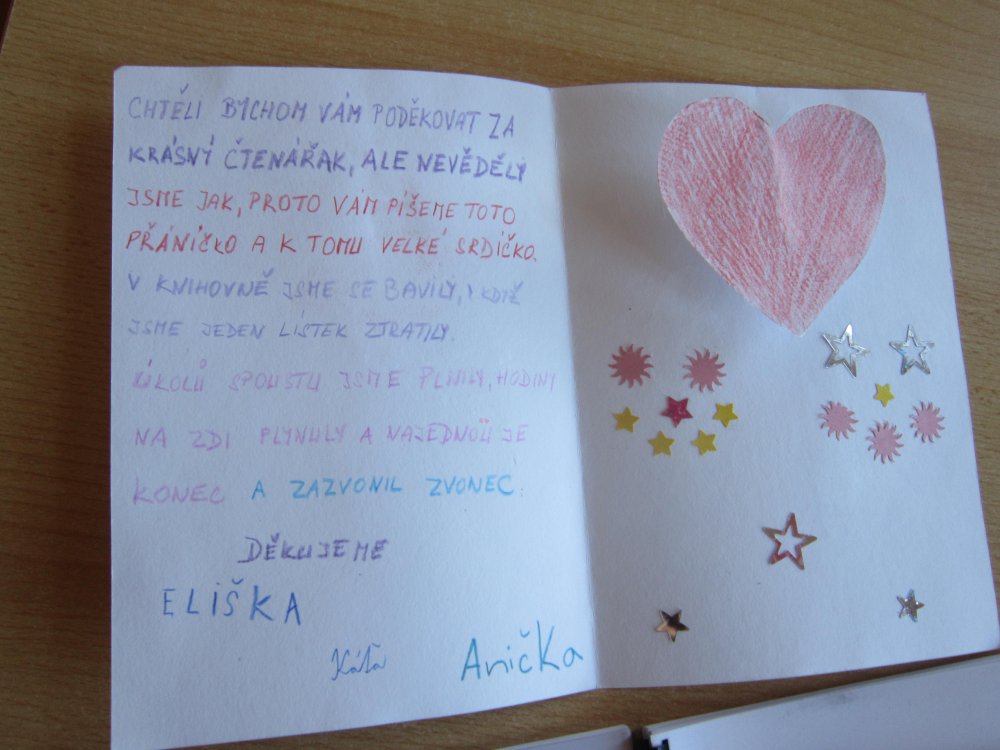 CHTĚLI BYCHOM VÁM PODĚKOVAT ZA
KRÁSNÝ ČTENÁŘAK, ALE NEVĚDĚLY
JSME JAK, PROTO VÁM PÍŠEME TOTO
PŘÁNÍČKO A K TOMU VELKÉ SRDÍČKO.
V KNIHOVNĚ JSME SE BAVILY, I KDYŽ
JSME JEDEN LÍSTEK ZTRATILY.
ÚKOLŮ SPOUSTU JSME PLNILY, HODINY
NA ZDI PLYNULY A NAJEDNOU JE
KONEC A ZAZVONIL ZVONEC.
DĚKUJEME
ELIŠKA
Káťa
Anička